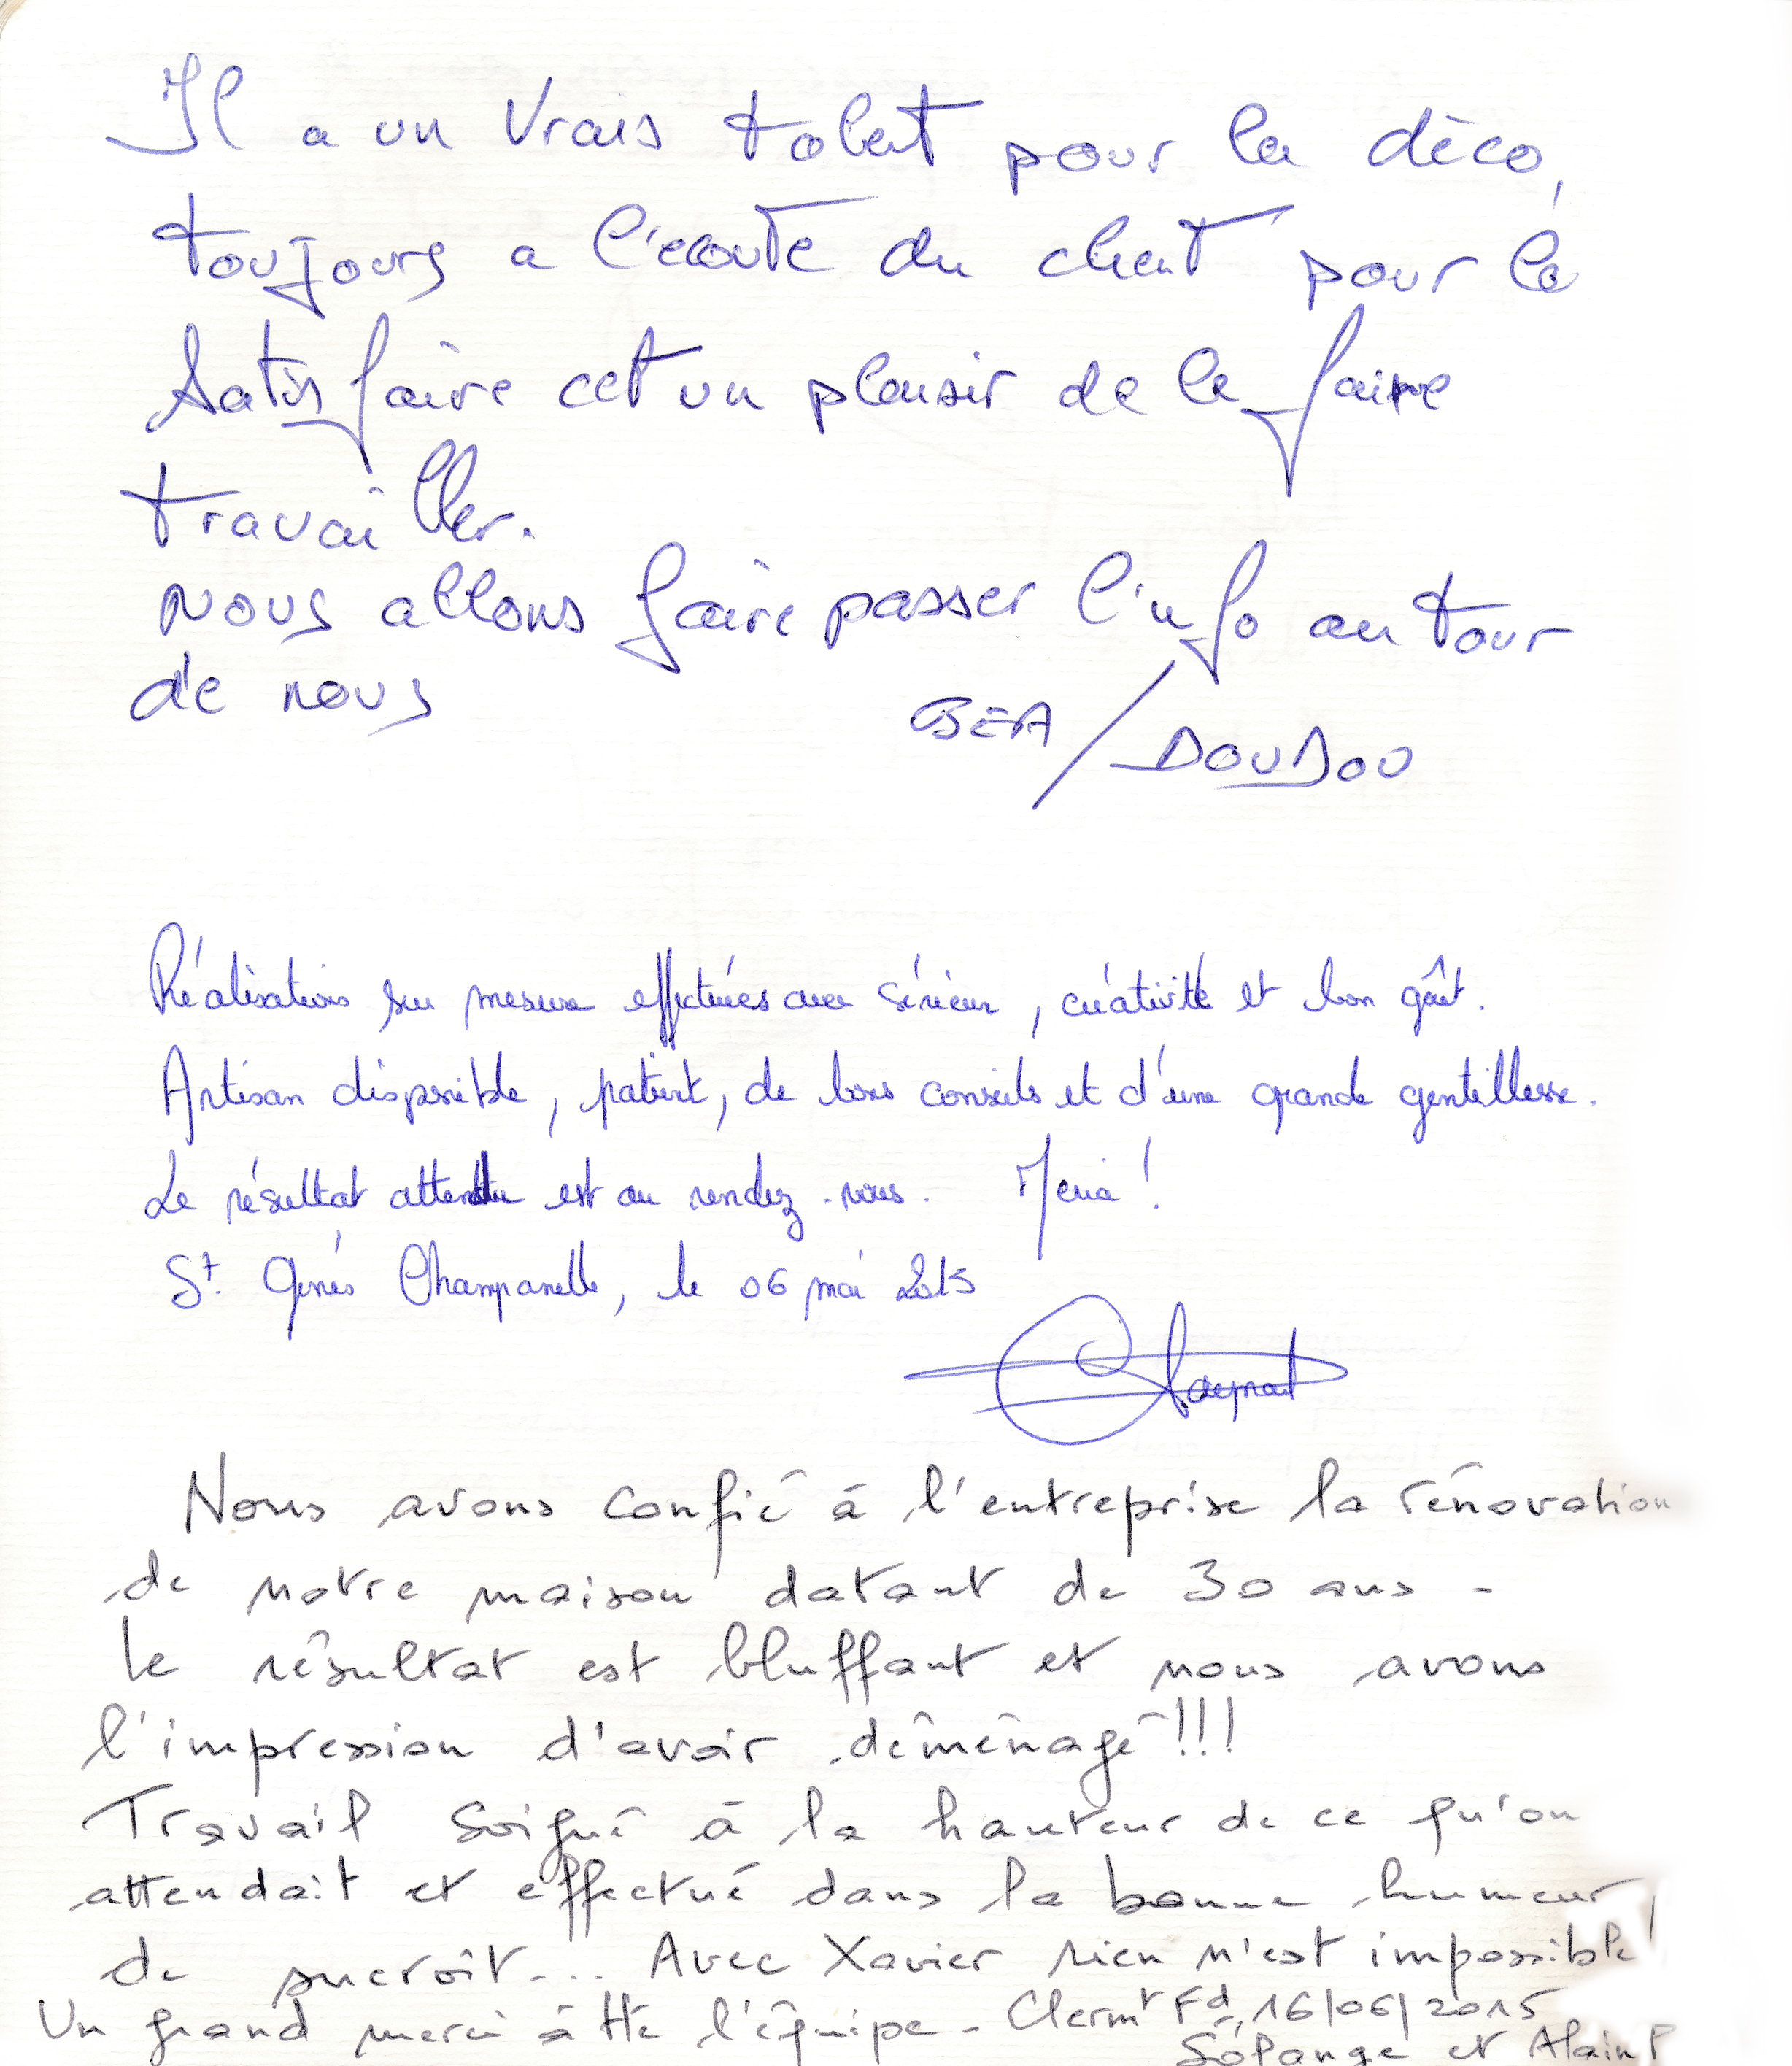 Il a un vrais talent pour la déco,
toujours a l'écoute du client pour le
satisfaire cet un plaisir de le faire
travailler.
Nous allons faire passer l'info au tour
de nous
BEA / DOUDOU
Réalisations sur mesure effectuées avec sérieux, créativité et bon goût.
Artisan disponible, patient, de bons conseils et d'une grande gentillesse.
Le résultat attendu est au rendez-vous. Merci !
St. Genès Champanelle, le 06 mai 2015
Nous avons confié à l'entreprise la rénovation
de notre maison datant de 30 ans -
le résultat est bluffant et nous avons
l'impression d'avoir déménagé !!!
Travail soigné à la hauteur de ce qu'on
attendait et effectué dans la bonne humeur
de surcroît... Avec Xavier rien n'est impossible !
Un grand merci à tte l'équipe - Clermt Fd, 16/06/2015
Solange et Alain P